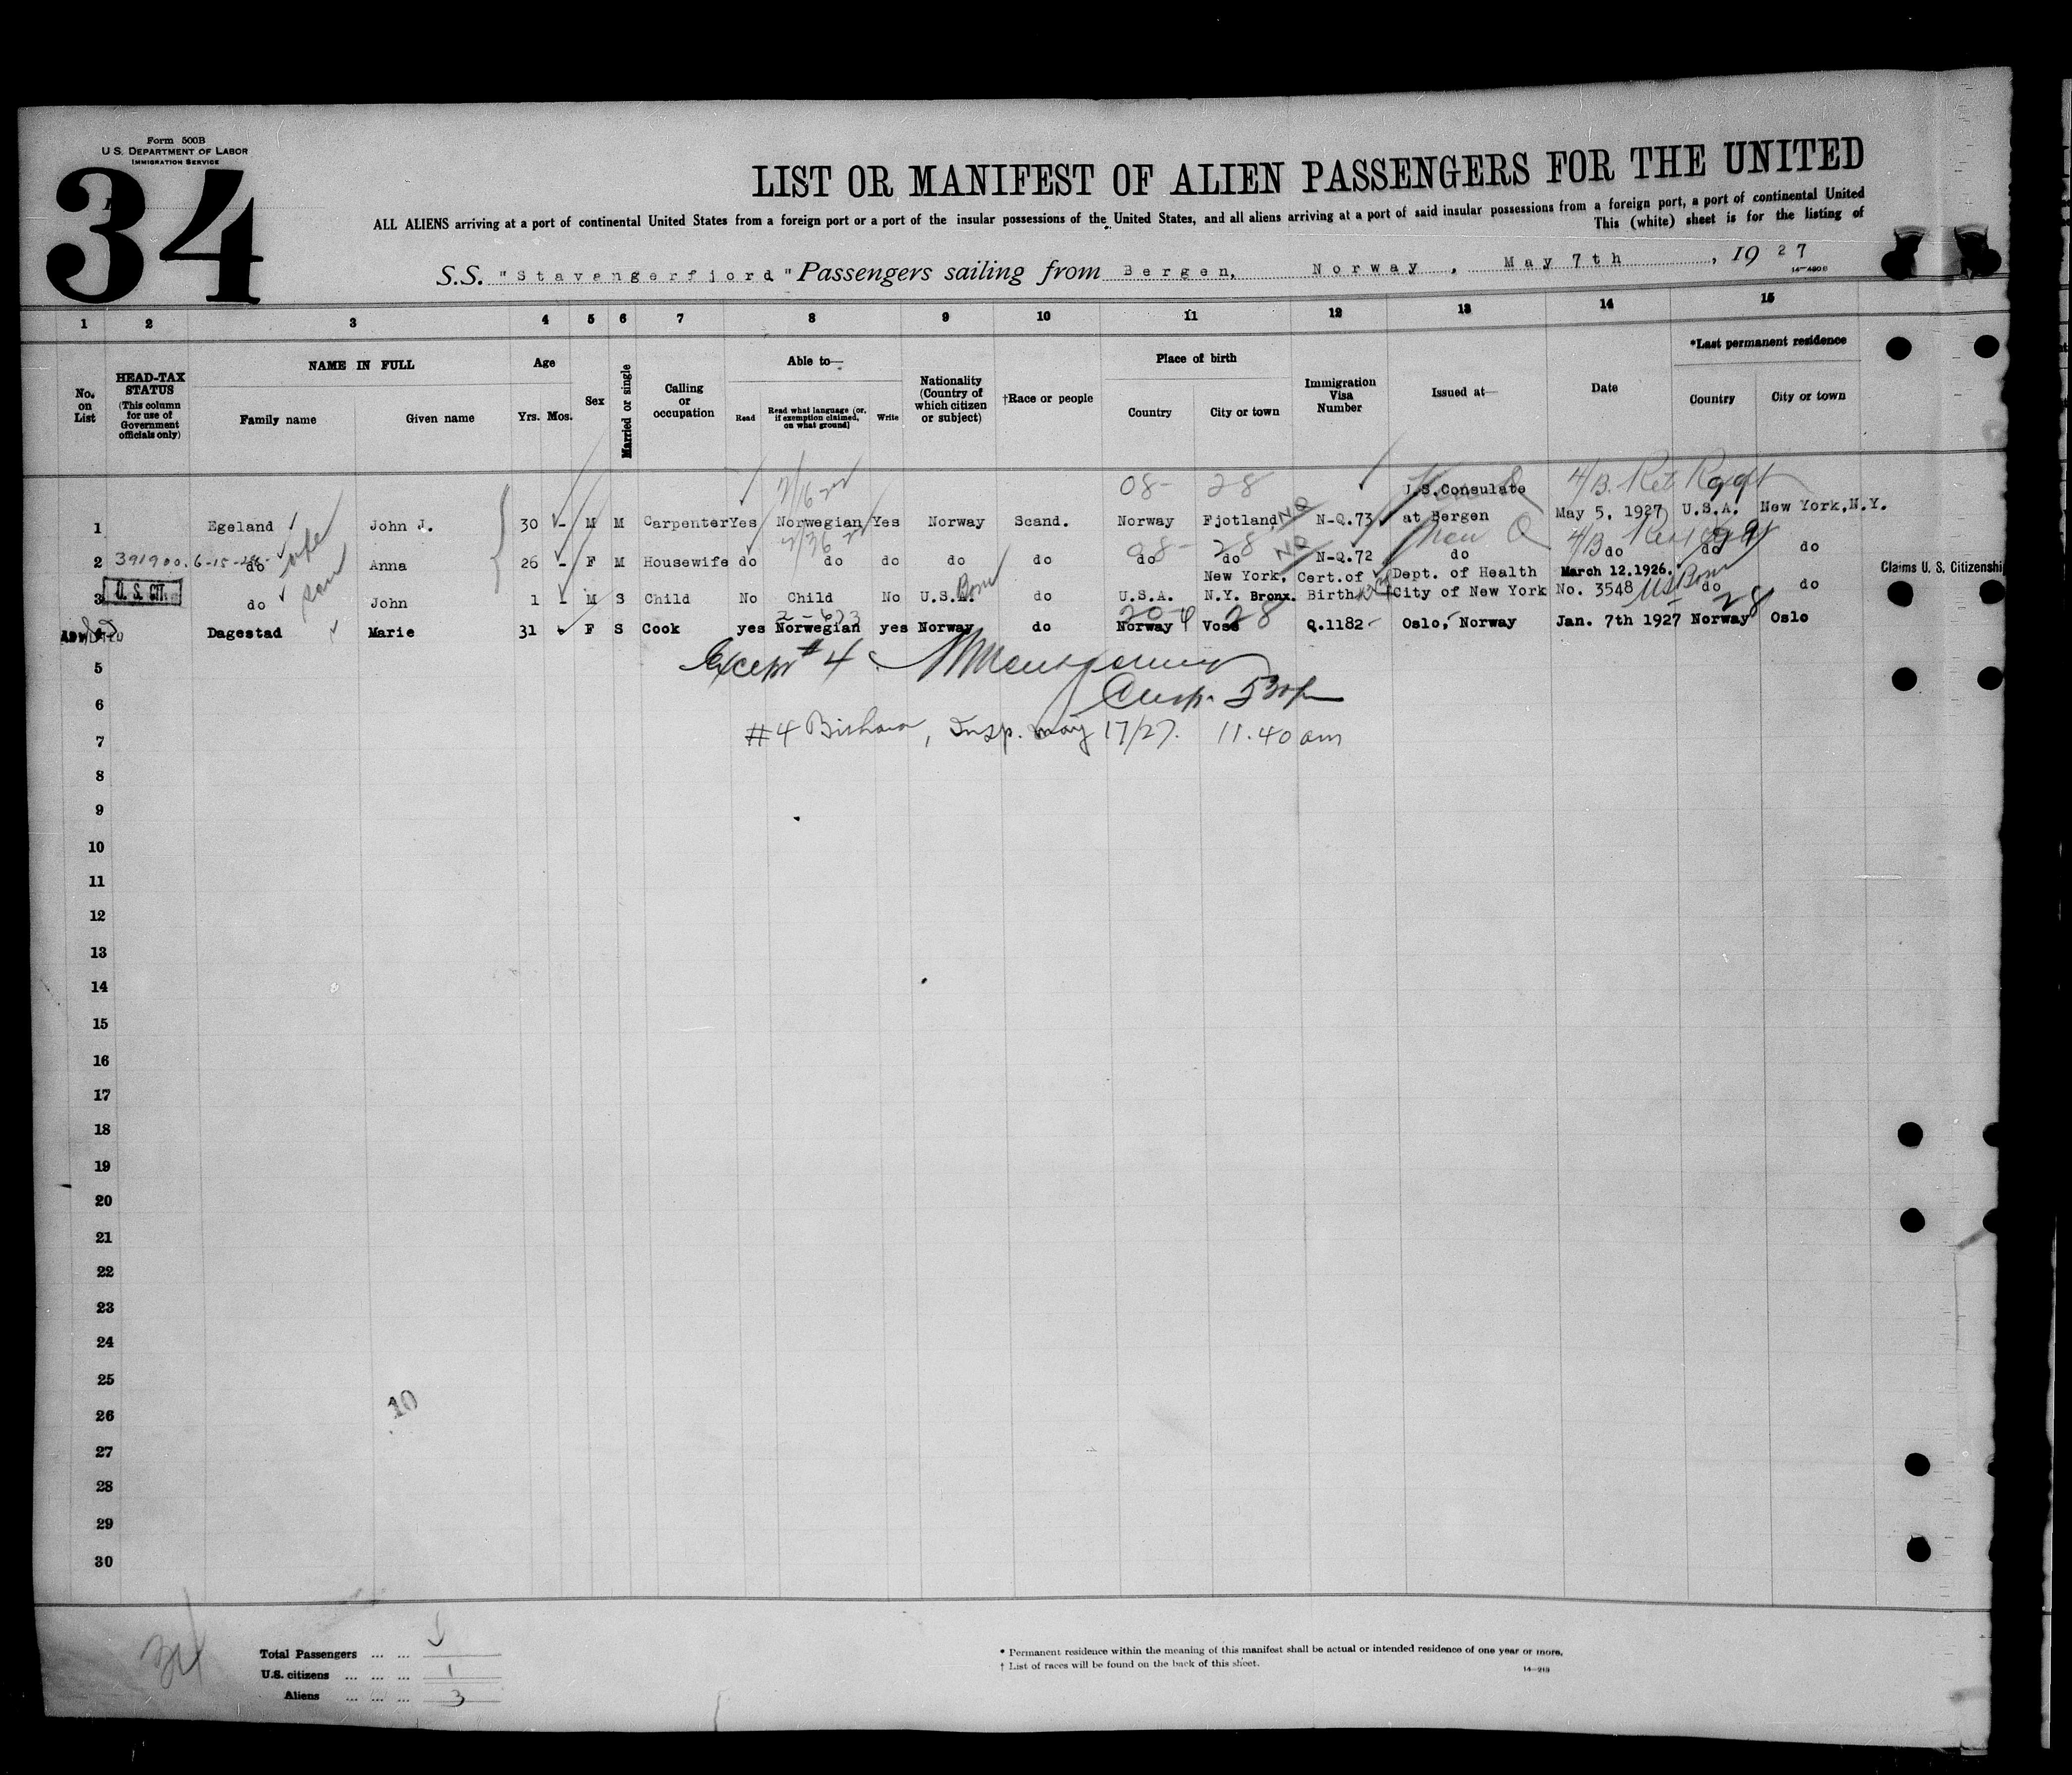 Form 500B
U. S. DEPARTMENT OF LABOR
IMMIGRATION SERVICE
34
LIST OR MANIFEST OF ALIEN PASSENGERS FOR THE UNITED
ALL ALIENS arriving at a port of continental United States from a foreign port or a port of the insular possessions of the United States, and all aliens arriving at a port of said insular possessions from a foreign port, a port of continental United
This (white) sheet is for the listing of
S.S. "Stavengerfjord" Passengers sailing from Bergen, Norway, May 7th, 1927
1 2 3 4 5 6 7 8 9 10 11 12 13 14 15
No. on List
HEAD-TAX STATUS
(This column for use of Government officials only)
NAME IN FULL
Family name Given name
Age
Yrs. Mos.
Sex
Married or single
Calling or occupation
Able to—
Read
Read what language (or, if exemption claimed, on what ground)
Write
Nationality (Country of which citizen or subject)
†Race or people
Place of birth
Country City or town
Immigration Visa Number
Issued at—
Date
*Last permanent residence
Country City or town
08- 28
1 Egeland John J. 30 - M M Carpenter Yes Norwegian Yes Norway Scand. Norway Fjotland N-Q.73 U.S.Consulate at Bergen May 5, 1927 U.S.A. New York, N.Y.
2 391900. 6-15- do wife Anna 26 - F M Housewife do do do do do do do N-Q.72 do do do do
08- 28
3 U. S. CIT. do son John 1 - M S Child No Child No U.S.A. Born do U.S.A. New York, N.Y. Bronx. Cert.of Birth Dept. of Health City of New York March 12.1926. No. 3548 US Born do do
Claims U. S. Citizenshi
4 Dagestad Marie 31 - F S Cook yes Norwegian yes Norway do Norway Voss Q.1182 Oslo, Norway Jan. 7th 1927 Norway Oslo
28
28
Except #4 Montgomery
Insp. 530p
#4 Insp. May 17/27. 11.40 am
5
6
7
8
9
10
11
12
13
14
15
16
17
18
19
20
21
22
23
24
25
26
27
28
29
30
10
34
Total Passengers ... ...
U.S. citizens ... ... ... 1
Aliens ... ... ... 3
* Permanent residence within the meaning of this manifest shall be actual or intended residence of one year or more.
† List of races will be found on the back of this sheet.
14—213